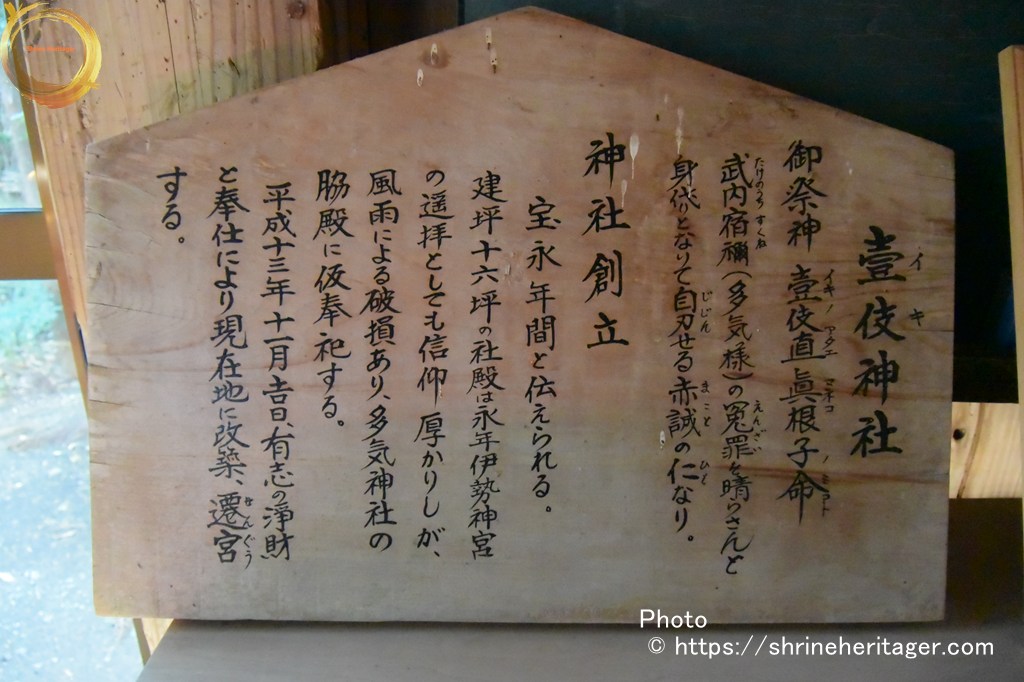 壹伎神社
イキ
御祭神 壹伎直眞根子命
イキノアタエマネコノミコト
武内宿禰（多気様）の冤罪を晴らさんと
たけのうちすくね
えんざい
身代りとなりて自刃せる赤誠の仁なり。
じじん
まこと
ひと
神社創立
宝永年間と伝えられる。
建坪十六坪の社殿は永年伊勢神宮
の遥拝としても信仰厚かりしが、
風雨による破損あり、多気神社の
脇殿に仮奉祀する。
平成十三年十一月吉日、有志の浄財
と奉仕により現在地に改築、遷宮
せんぐう
する。
Photo
© https://shrineheritager.com